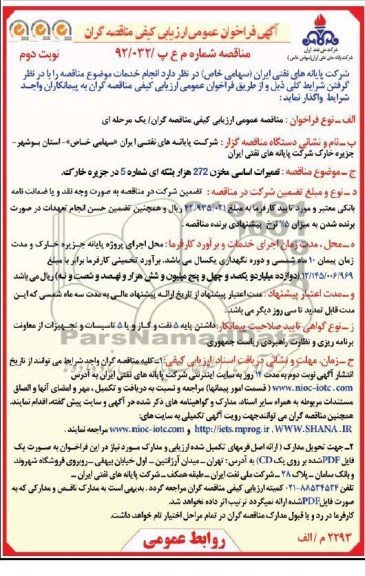 آگهی فراخوان عمومی ارزیابی کیفی مناقصه گران
مناقصه شماره م ع پ /۹۲/۰۳۲
نوبت دوم
شرکت ملی نفت ایران
شرکت پایانه های نفتی ایران (سهامی خاص)
شرکت پایانه های نفتی ایران (سهامی خاص) در نظر دارد انجام خدمات موضوع مناقصه را با در نظر
گرفتن شرایط کلی ذیل و از طریق فراخوان عمومی ارزیابی کیفی مناقصه گران به پیمانکاران واجد
شرایط واگذار نماید:
الف - نوع فراخوان : مناقصه عمومی ارزیابی کیفی مناقصه گران/ یک مرحله ای
ب - نام و نشانی دستگاه مناقصه گزار : شرکت پایانه های نفتی ایران «سهامی خاص»- استان بوشهر-
جزیره خارک شرکت پایانه های نفتی ایران
ج - موضوع مناقصه : تعمیرات اساسی مخزن 272 هزار بشکه ای شماره 5 در جزیره خارک.
د - نوع و مبلغ تضمین شرکت در مناقصه : تضمین شرکت در مناقصه به صورت وجه نقد و یا ضمانت نامه
بانکی معتبر و مورد تایید کارفرما به مبلغ ریال و همچنین تضمین حسن انجام تعهدات در صورت
برنده شدن به میزان ۵٪ نرخ پیشنهادی برنده مناقصه .
ه - محل ، مدت زمان اجرای خدمات و برآورد کارفرما : محل اجرای پروژه پایانه جزیره خارک و مدت
زمان پیمان ۱۰ ماه شمسی و دوره نگهداری یکسال می باشد. برآورد تخمینی کارفرما برابر با مبلغ
۱۲/۱۴۵/۰۰۶/۹۶۹ (دوازده میلیارد و یکصد و چهل و پنج میلیون و شش هزار و نهصد و شصت و نه) ریال می باشد
و - مدت اعتبار پیشنهاد : مدت اعتبار پیشنهاد از تاریخ ارائه پیشنهاد مالی به مدت سه ماه شمسی که این
مدت قابل تمدید تا سی روز دیگر می باشد.
ز - نوع گواهی تایید صلاحیت پیمانکار: داشتن پایه ۵ نفت و گاز و یا ۵ تاسیسات و تجهیزات از معاونت
برنامه ریزی و نظارت راهبردی ریاست جمهوری
ح - زمان، مهلت و نشانی دریافت اسناد ارزیابی کیفی: ۱- کلیه مناقصه گران واجد شرایط می توانند از تاریخ
انتشار آگهی نوبت دوم به مدت ۱۴ روز به سایت اینترنتی شرکت پایانه های نفتی ایران به آدرس
www.nioc-iotc.com ( قسمت امور پیمانها) مراجعه و نسبت به دریافت و تکمیل ، مهر و امضای آنها و الصاق
مستندات مربوطه به همراه سایر اسناد، مدارک و گواهینامه های ذکر شده در آگهی و سایت پیش گفته، اقدام نمایند.
همچنین مناقصه گران می توانند جهت رویت آگهی تکمیلی به سایت های:
WWW.SHANA.IR ، http://iets.mporg.ir و www.nioc-iotc.com مراجعه نمایند .
۲- جهت تحویل مدارک ( ارائه اصل فرمهای تکمیل شده ارزیابی و مدارک مورد نیاز در این فراخوان به صورت یک
فایل PDF شده بر روی یک CD) به آدرس : تهران - میدان آرژانتین - اول خیابان بیهقی - روبروی فروشگاه شهروند
و بانک سامان - پلاک ۲۸ - شرکت ملی نفت ایران - طبقه همکف - شرکت پایانه های نفتی ایران -
تلفن ۸۸۵۳۴۵۳۴-۰۲۱ کمیته ارزیابی کیفی مناقصه گران مراجعه گردد. بدیهی است به مدارک ناقص و مدارکی که به
صورت فایل PDF شده ارائه نمیگردد ترتیب اثر داده نخواهد شد.
کارفرما در رد و یا قبول مدارک مناقصه گران در تمام مراحل اختیار تام خواهد داشت.
۳۲۹۳ م / الف
روابط عمومی
ParsNamadData